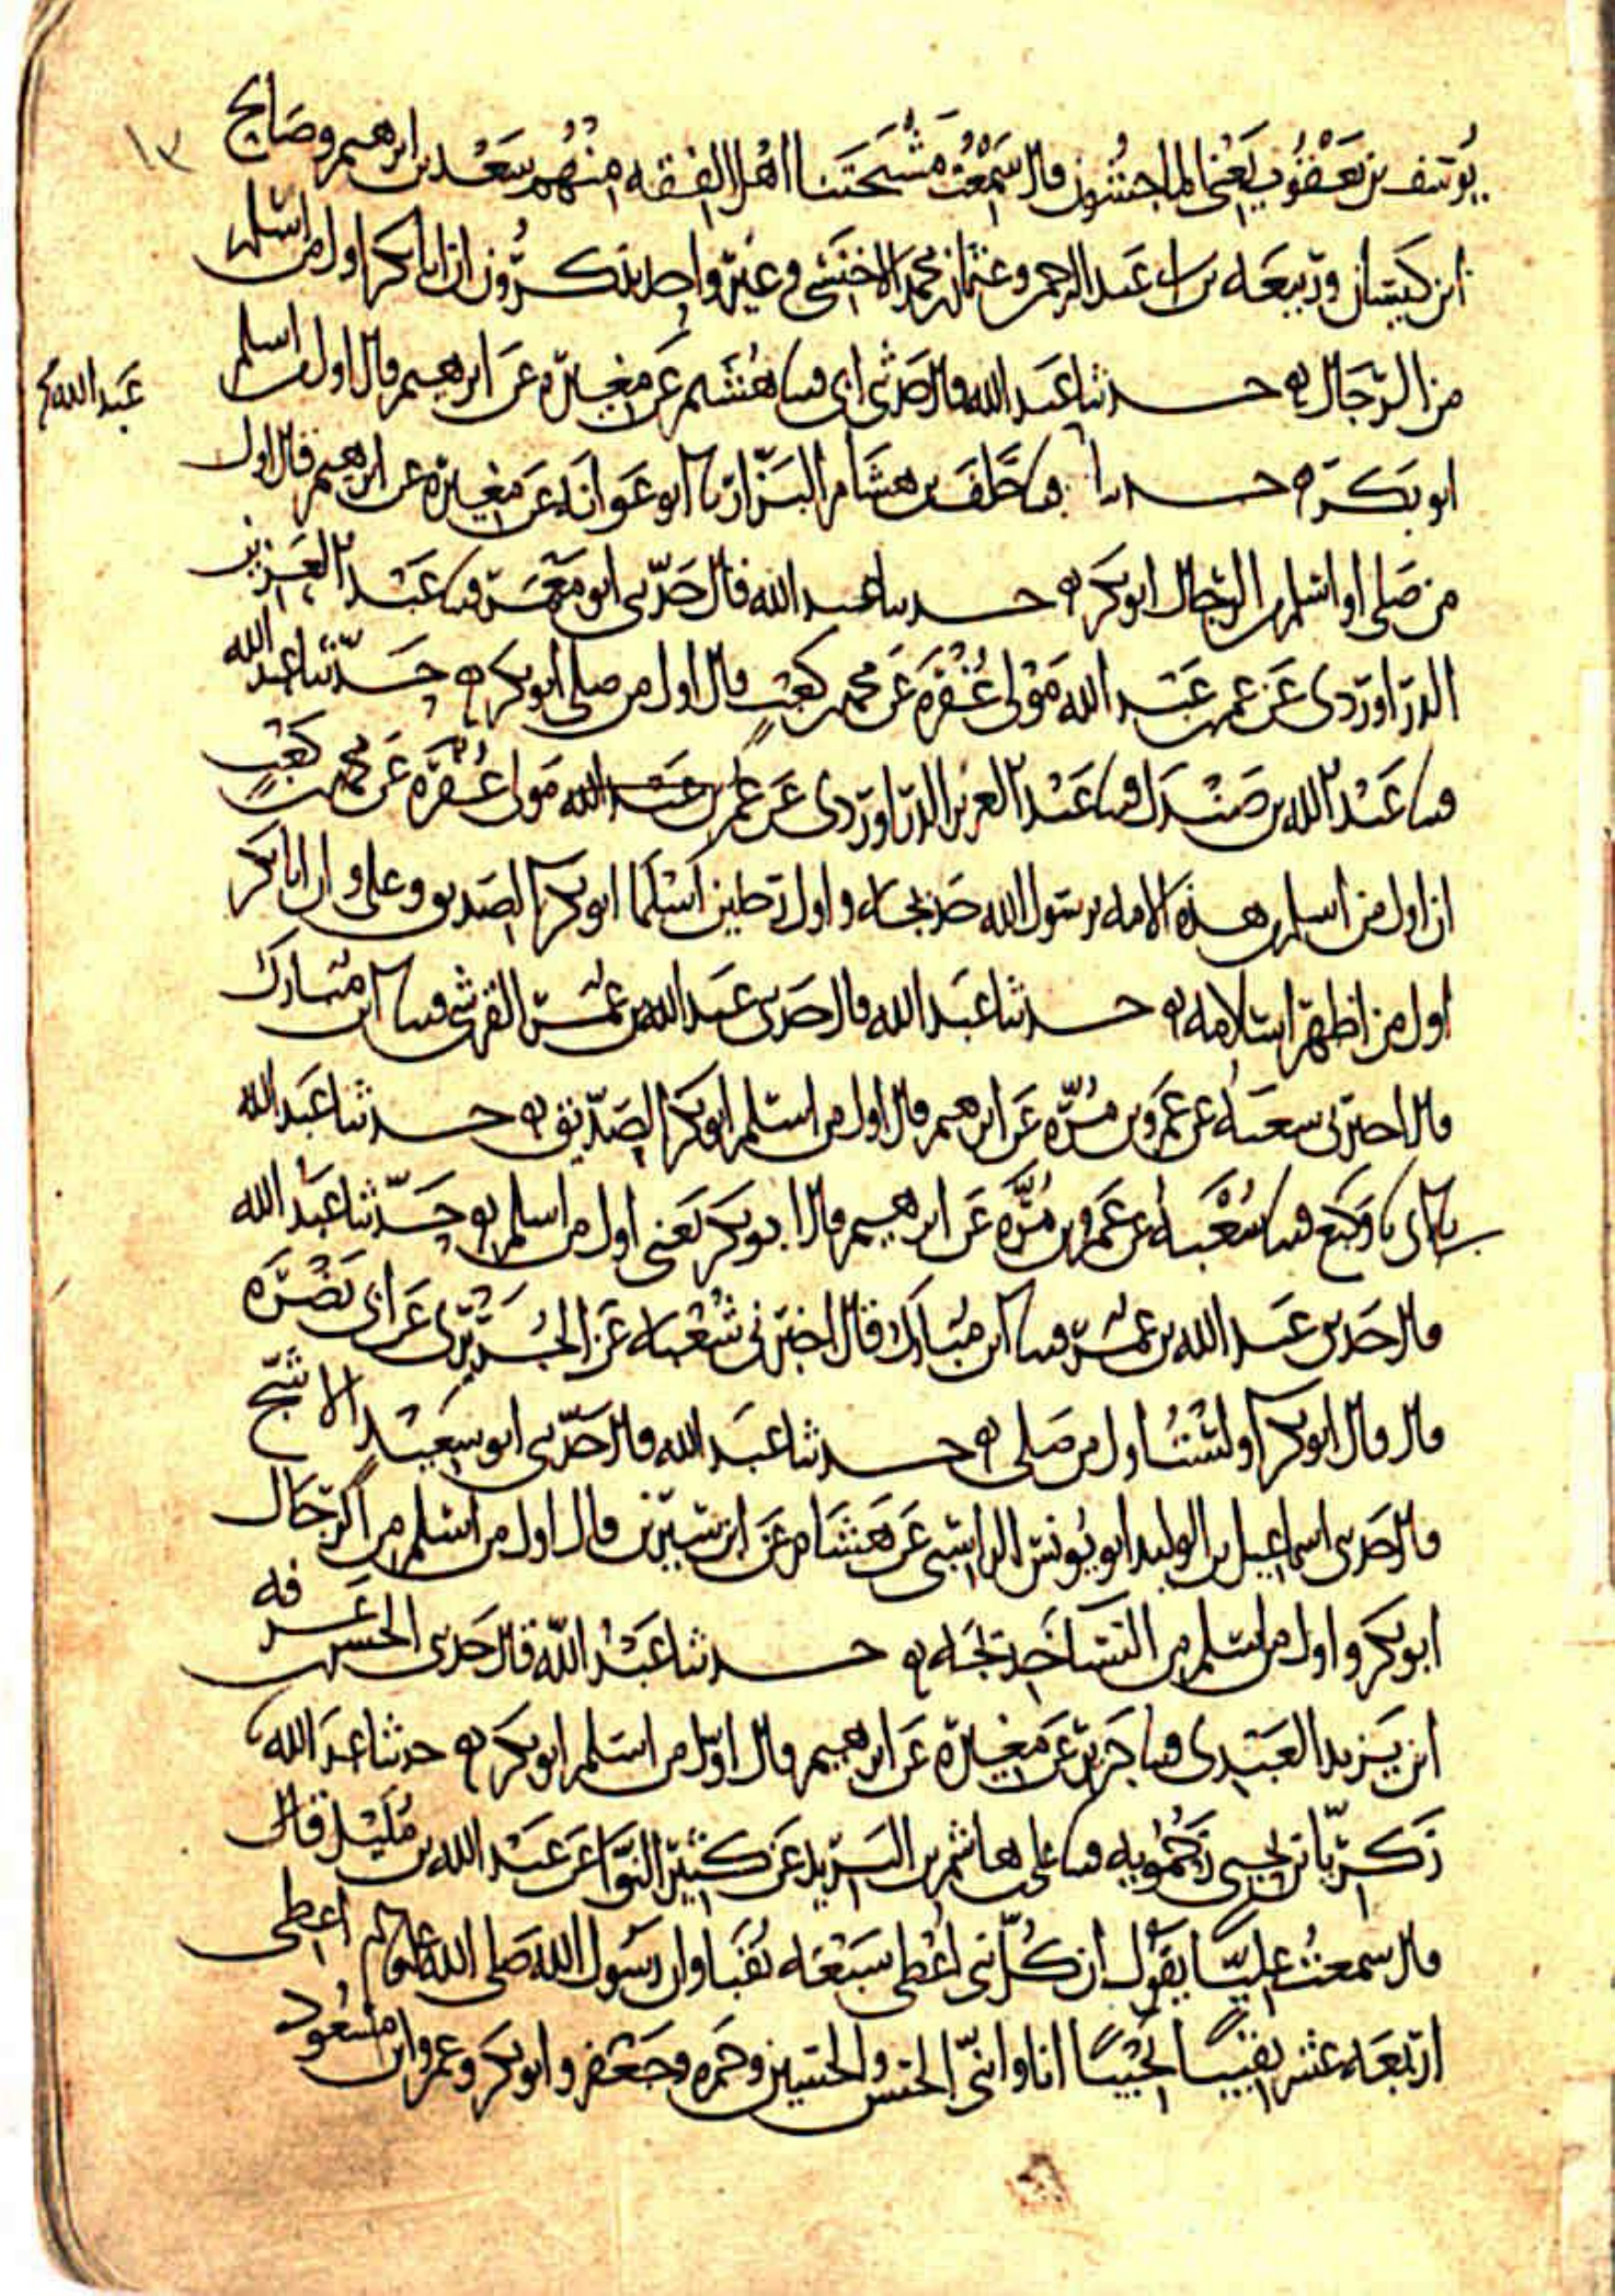 ١٣
يوسف بن يعقوب يعني الماجشون قال سمعت مشيختنا اهل الفقه منهم سعد بن ابرهيم وصالح
ابن كيسان وربيعه بن ابي عبد الرحمن وعثمان بن محمد الاخنسي وغير واحد يذكرون ان ابا بكر اول من اسلم
من الرجال حدثنا عبد الله قال حدثني ابي قثنا هشيم عن مغيرة عن ابرهيم قال اول من اسلم
ابو بكر حدثنا قثنا خلف بن هشام البزار نا ابو عوانه عن مغيرة عن ابرهيم قال اول
عبد الله
من صلى او اسلم من الرجال ابو بكر حدثنا عبد الله قال حدثني ابو معمر قثنا عبد العزيز
الدراوردى عن عمر بن عبد الله مولى غفره عن محمد بن كعب قال اول من صلى ابو بكر حدثنا عبد الله
قثنا عبد الله بن صندل قثنا عبد العزيز الدراوردى عن عمر بن عبد الله مولى غفره عن محمد بن كعب
ان اول من اسلم من هذه الامه برسول الله خديجه واول رجلين اسلما ابو بكر الصديق وعلي وان ابا بكر
اول من اظهر اسلامه حدثنا عبد الله قال حدثني عبد الله بن عمر القرشي قثنا ابن مبارك
قال اخبرني شعبه عن عمرو بن مره عن ابرهيم قال اول من اسلم ابو بكر الصديق حدثنا عبد الله
قال ابي نا وكيع قثنا شعبه عن عمرو بن مره عن ابرهيم قال ابو بكر يعني اول من اسلم حدثنا عبد الله
قال حدثني عبد الله بن عمر قثنا ابن مبارك قال اخبرني شعبه عن الجريري عن ابي نضره
قال قال ابو بكر اولست اول من صلى حدثنا عبد الله قال حدثني ابو سعيد الاشج
قال حدثني اسماعيل بن الوليد ابو يونس الراسبي عن هشام عن ابن سيرين قال اول من اسلم من الرجال
ابو بكر واول من اسلم من النسا خديجه حدثنا عبد الله قال حدثني الحسن بن عرفه
ابن يزيد العبدى قثنا جرير عن مغيرة عن ابرهيم قال اول من اسلم ابو بكر حدثنا عبد الله
زكريا بن يحيى زحمويه قثنا علي بن هاشم بن البريد عن كثير النوا عن عبد الله بن مليل قال
قال سمعت عليا يقول ان كل نبي اعطي سبعه نقبا وان رسول الله صلى الله عليه وسلم اعطي
اربعه عشر نقيبا نجيبا انا وابني الحسن والحسين وحمزه وجعفر وابو بكر وعمر وابن مسعود